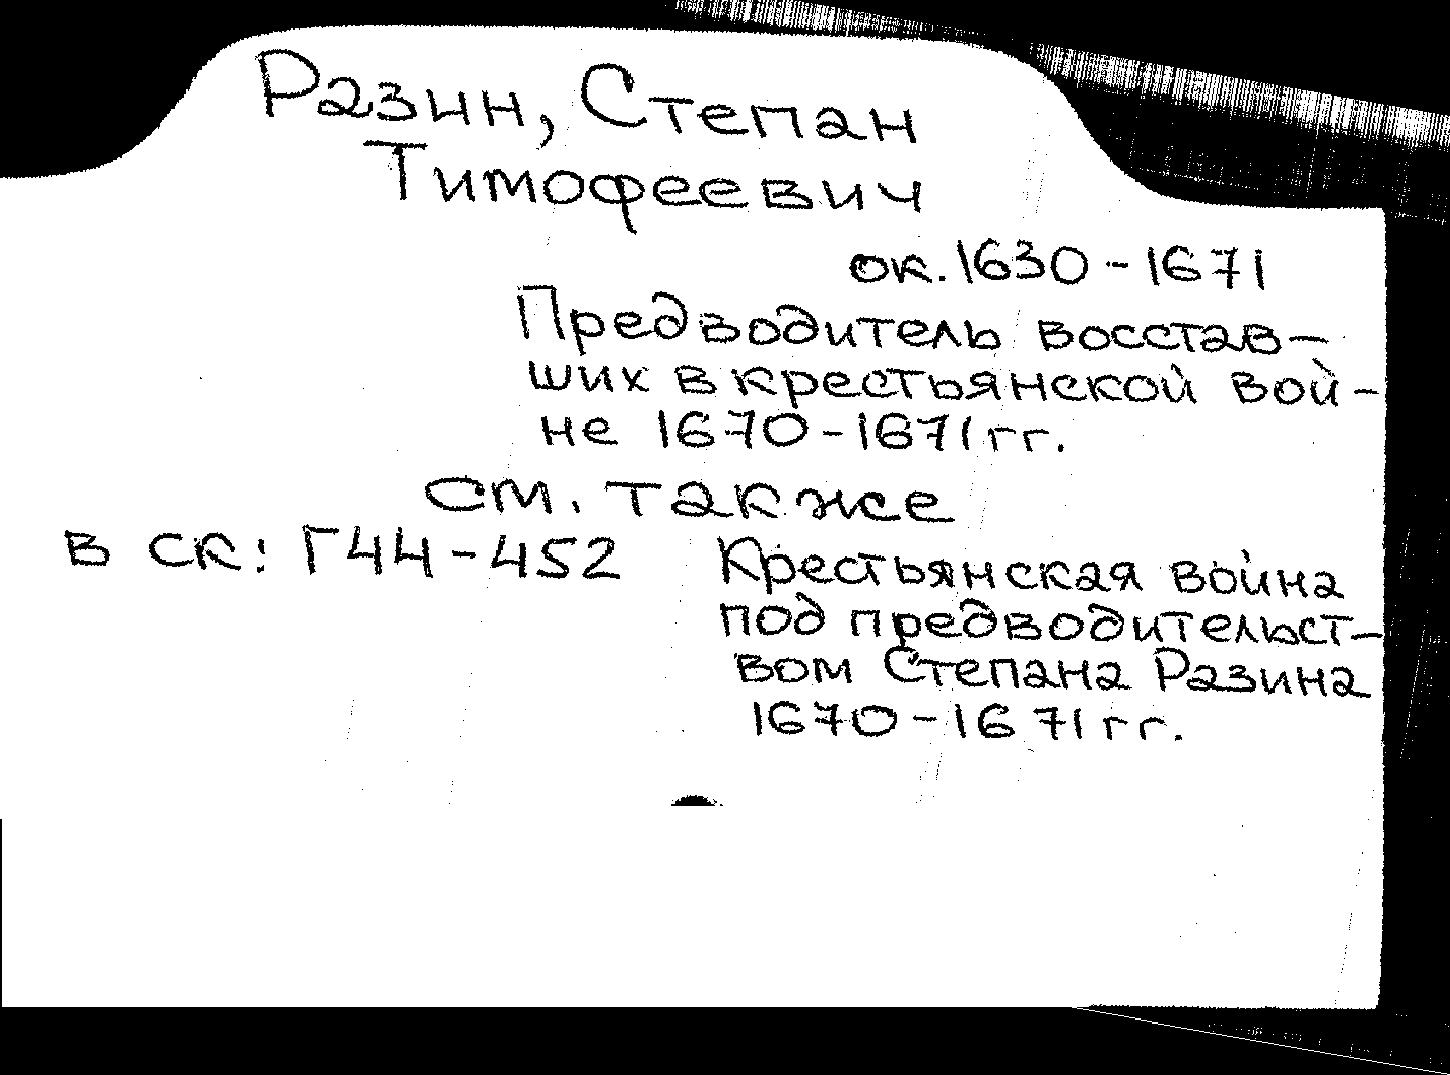 Разин, Степан
Тимофеевич
ок. 1630 - 1671
Предводитель восстав-
ших в крестьянской вой-
не 1670-1671 гг.
см. также
в СК: Г44-452
Крестьянская война
под предводительст-
вом Степана Разина
1670-1671 гг.